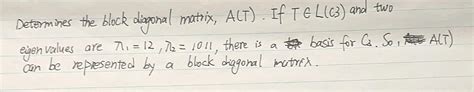 Determines the block diagonal matrix, A(T). If T ∈ L(C3) and two
eigenvalues are π1 = 12, π2 = 1011, there is a basis for C3. So, A(T)
can be represented by a block diagonal matrix.